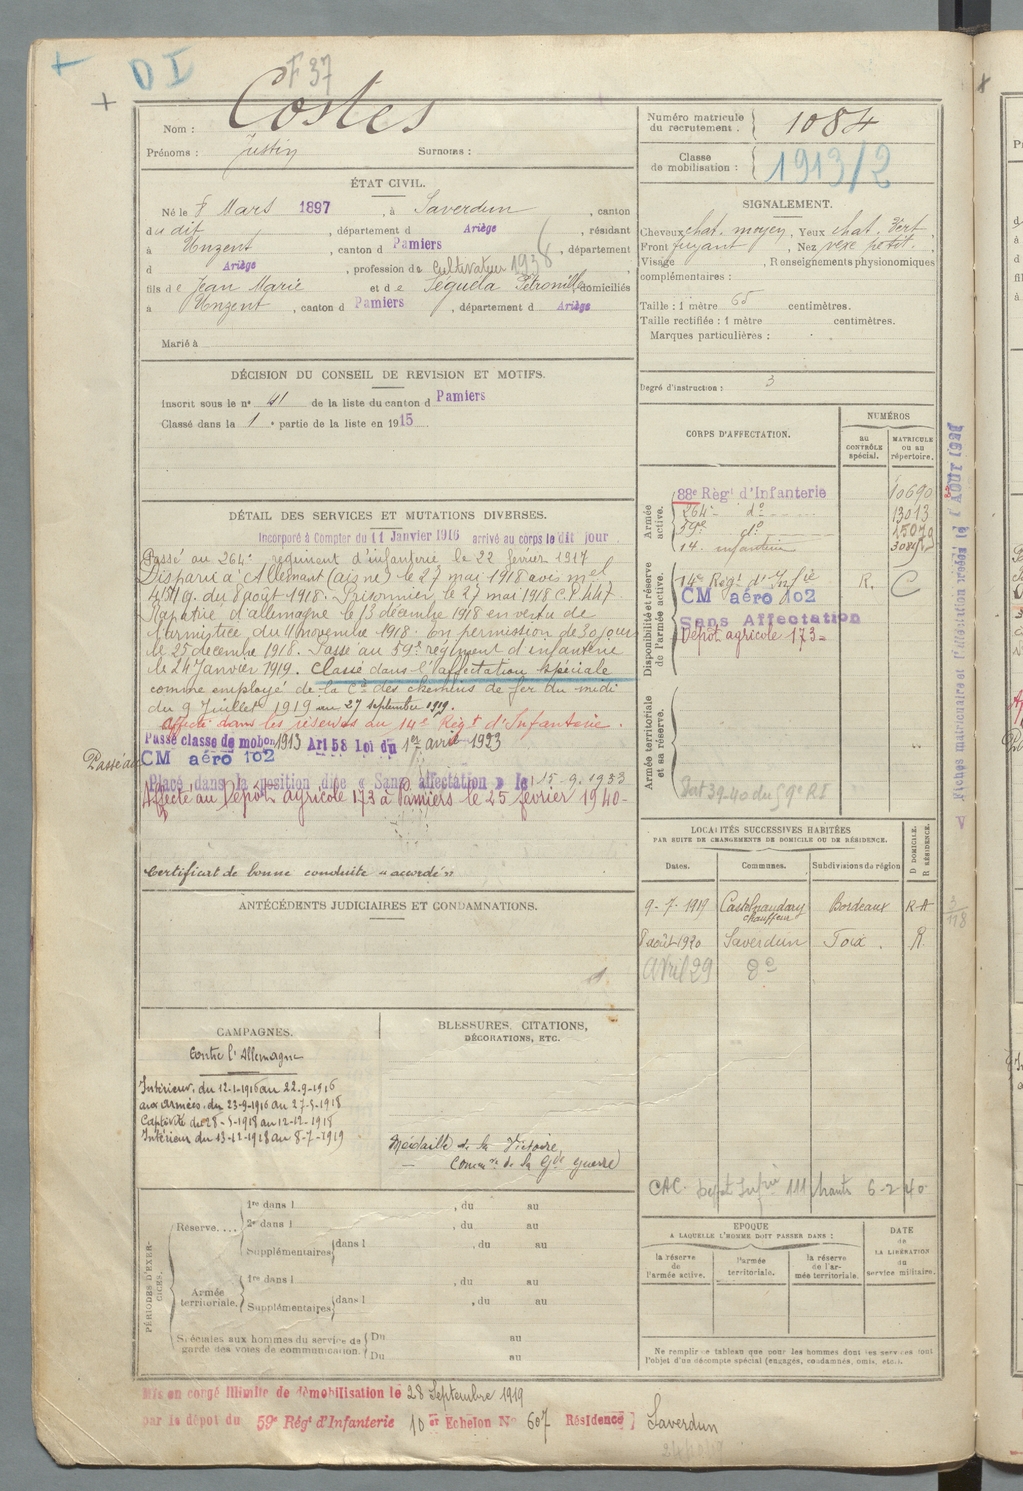 DI
F 37
Nom : Costes
Prénoms : Justin Surnoms :
Numéro matricule du recrutement. 1084
Classe de mobilisation : 1913/2
ÉTAT CIVIL.
Né le 8 Mars 1897, à Saverdun, canton
du dit, département d Ariège, résidant
à Unzent, canton d Pamiers, département
d Ariège, profession de Cultivateur 1936,
fils de Jean Marie et de Séguéla Pétronille, domiciliés
à Unzent, canton d Pamiers, département d Ariège
Marié à
SIGNALEMENT.
Cheveux chat. moyen, Yeux chat. Vert.
Front fuyant, Nez vexe petit.
Visage , Renseignements physionomiques
complémentaires :
Taille : 1 mètre 65 centimètres.
Taille rectifiée : 1 mètre centimètres.
Marques particulières :
Degré d'instruction : 3
DÉCISION DU CONSEIL DE REVISION ET MOTIFS.
Inscrit sous le n° 41 de la liste du canton d Pamiers
Classé dans la 1e partie de la liste en 1915
DÉTAIL DES SERVICES ET MUTATIONS DIVERSES.
Incorporé à Compter du 11 Janvier 1916 arrivé au corps le dit jour
Passé au 264e régiment d'infanterie le 22 février 1917
Disparu à Allemant (aisne) le 27 mai 1918 avis mel
du 8 août 1918. Prisonnier le 27 mai 1918
Rapatrié d'allemagne le 13 décembre 1918 en vertu de
l'armistice du 11 novembre 1918. En permission de 30 jours
le 25 decembre 1918. Passé au 59e régiment d'infanterie
le 24 Janvier 1919. Classé dans l'affectation spéciale
comme employé de la Cie des chemins de fer du midi
du 9 Juillet 1919 au 27 septembre 1919.
Affecté dans les réserves du 14e Régt d'Infanterie.
Passé classe de mobon 1913 Art 58 Loi du 1er avril 1923
Passé au CM aéro 102
Placé dans la position dite « Sans affectation » le 15.9.1933
Affecté au Dépôt agricole 173 à Pamiers le 25 février 1940-
Certificat de bonne conduite "accordé"
CORPS D'AFFECTATION.
NUMÉROS
au CONTRÔLE spécial.
MATRICULE ou au répertoire.
Armée active.
88e Régt d'Infanterie 10690
264e do 13013
59e do
14. infanterie
Disponibilité et réserve de l'armée active.
14e Régt d'Infie R. C
CM aéro 102
Sans Affectation
Dépôt agricole 173=
Armée territoriale et sa réserve.
39-40 du 59e RI
ANTÉCÉDENTS JUDICIAIRES ET CONDAMNATIONS.
LOCALITÉS SUCCESSIVES HABITÉES
PAR SUITE DE CHANGEMENTS DE DOMICILE OU DE RÉSIDENCE.
Dates. Communes. Subdivisions de région
D DOMICILE. R RÉSIDENCE.
9-7-1919 Castelnaudary chauffeur Bordeaux R-A
8 août 1920 Saverdun Foix. R.
Avril 29 do
3/118
CAMPAGNES.
Contre l'Allemagne
Intérieur. du 12-1-1916 au 22.9-1916
aux Armées. du 23-9-1916 au 27-5-1918
Captivité du 28-5-1918 au 12-12-1918
Intérieur du 13-12-1918 au 8-7-1919
BLESSURES, CITATIONS,
DÉCORATIONS, ETC.
Médaille de la Victoire
— Comm.ve de la Gde guerre
CAC. Dépôt Infie 111 6-2-40
PÉRIODES D'EXERCICES.
Réserve.... 1re dans l , du au
2e dans l , du au
Supplémentaires dans l , du au
Armée territoriale. 1re dans l , du au
Supplémentaires dans l , du au
Spéciales aux hommes du service de garde des voies de communication. Du au
Du au
EPOQUE
A LAQUELLE L'HOMME DOIT PASSER DANS :
la réserve de l'armée active.
l'armée territoriale.
la réserve de l'armée territoriale.
DATE de LA LIBÉRATION du service militaire.
Ne remplir ce tableau que pour les hommes dont les services font
l'objet d'un décompte spécial (engagés, condamnés, omis, etc.).
Mis en congé illimité de démobilisation le 28 Septembre 1919
par le dépôt du 59e Régt d'Infanterie 10er Echelon No 607 Résidence Saverdun